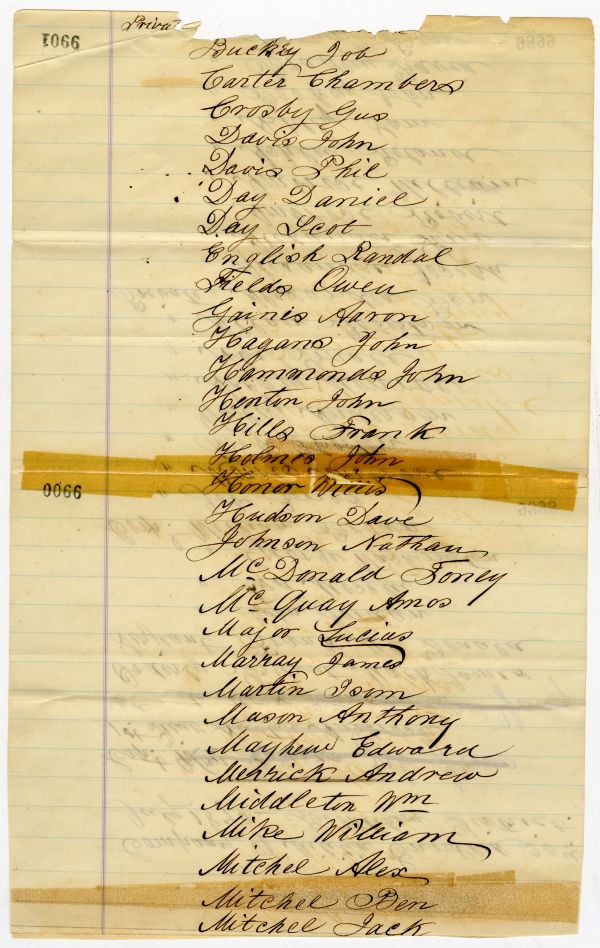 Privat
1066
Buckey Job
Carter Chambers
Crosby Gus
Davis John
Davis Phil
Day Daniel
Day Scot
English Randal
Fields Owen
Gaines Aaron
Hagans John
Hammonds John
Henton John
Hills Frank
Holmes John
Honor Willis
0066
Hudson Dave
Johnson Nathan
Mc Donald Toney
Mc Quay Amos
Major Lucias
Marray James
Martin Isom
Mason Anthony
Mayhew Edward
Merrick Andrew
Middleton Wm
Mike William
Mitchel Alex
Mitchel Ben
Mitchel Jack